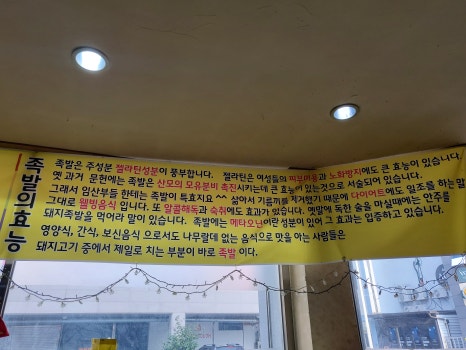 족발의효능
족발은 주성분 젤라틴성분이 풍부합니다. 젤라틴은 여성들의 피부미용과 노화방지에도 큰 효능이 있습니다.
옛 과거 문헌에는 족발은 산모의 모유분비 촉진시키는데 큰 효능이 있는것으로 서술되어 있습니다.
그래서 임산부들 한테는 족발이 특효지요 ^^ 삶아서 기름끼를 제거했기 때문에 다이어트에도 일조를 하는 말
그대로 웰빙음식 입니다. 또 알콜해독과 숙취에도 효과가 있습니다. 옛말에 독한 술을 마실때에는 안주를
돼지족발을 먹어라 말이 있습니다. 족발에는 메타오닌이란 성분이 있어 그 효과는 입증하고 있습니다.
영양식, 간식, 보신음식 으로서도 나무랄데 없는 음식으로 맛을 아는 사람들은
돼지고기 중에서 제일로 치는 부분이 바로 족발 이다.